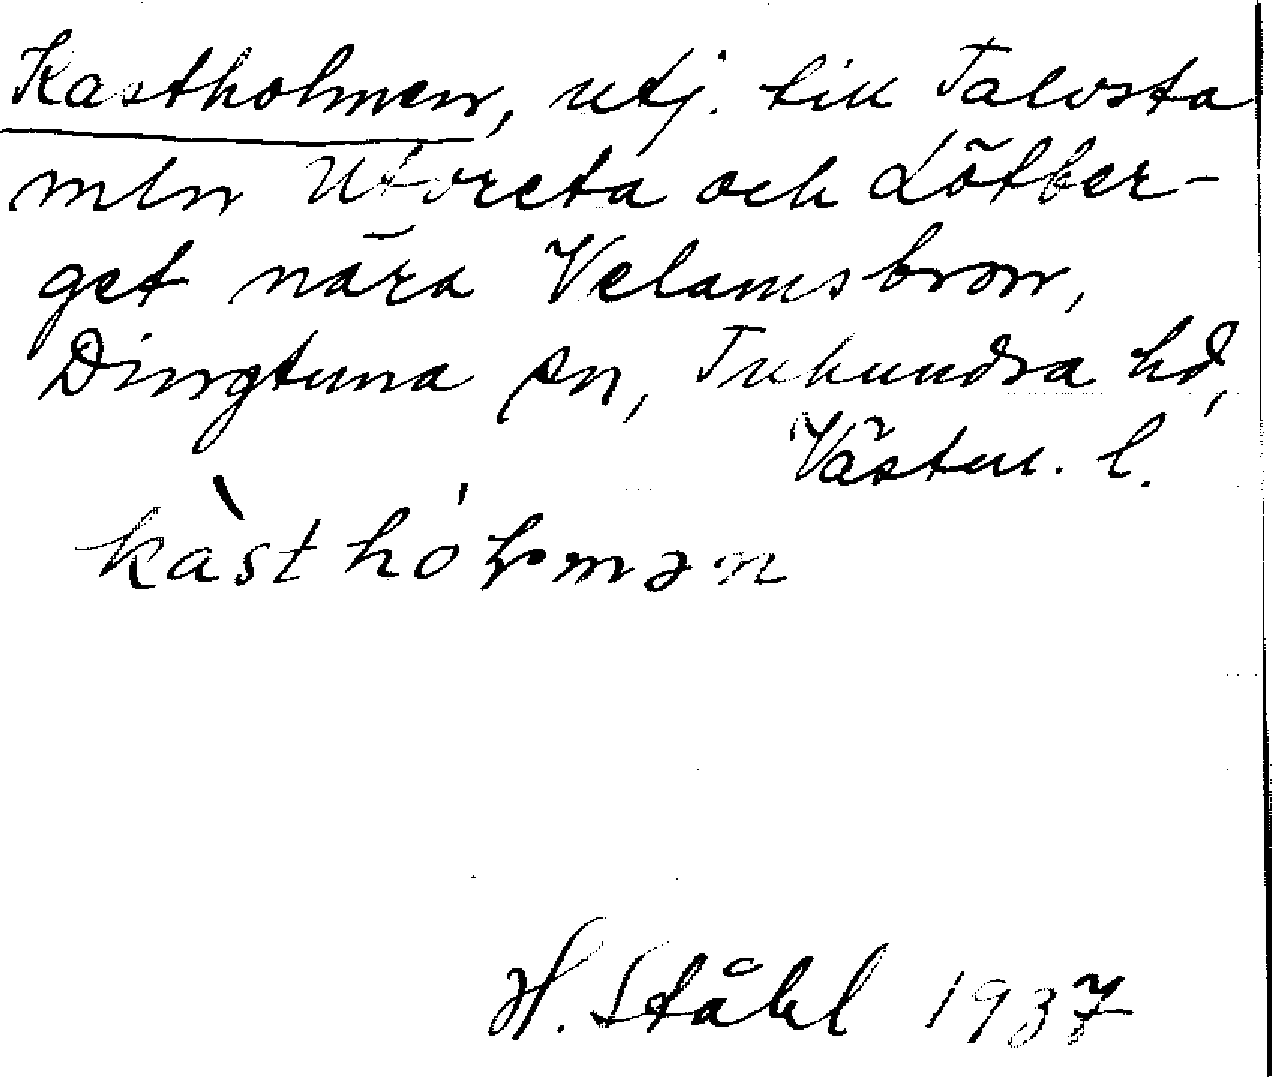 Kastholmen, utj. till Talvsta
mln Utvreta och Lötber-
get nära Velamsbron,
Dingtuna sn, Tuhundra hd,
Västm. l.
kàsthól̥mən
H. Ståhl 1937